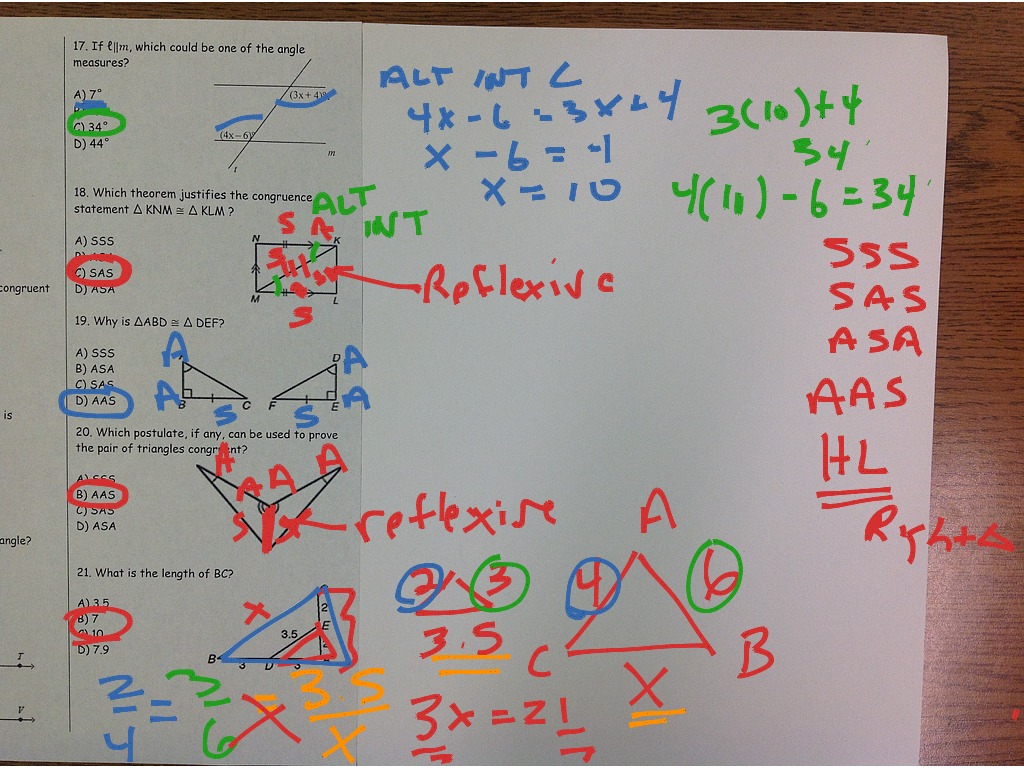 17. If ℓ||m, which could be one of the angle
measures?
A) 7°
C) 34°
D) 44°
(3x + 4)°
(4x−6)°
m
t
ALT INT C
4x - 6 = 3x + 4
x - 6 = 4
x = 10
3(10)+4
34
4(10) - 6 = 34
18. Which theorem justifies the congruence
statement Δ KNM ≅ Δ KLM ?
A) SSS
C) SAS
D) ASA
ALT
INT
S A
N K
M L
S
Reflexive
SSS
SAS
ASA
AAS
HL
Right Δ
congruent
19. Why is ΔABD ≅ Δ DEF?
A) SSS
B) ASA
C) SAS
D) AAS
A D A
A B S C F S E A
is
20. Which postulate, if any, can be used to prove
the pair of triangles congruent?
A) SSS
B) AAS
C) SAS
D) ASA
A A A A
S
reflexive
angle?
21. What is the length of BC?
A) 3.5
B) 7
C) 10
D) 7.9
x
2
3.5 E
B 3 D 3
2 3
3.5
A
4 6
C B
x
2/4 = 3/6 = 3.5/x
3x = 21
T
V